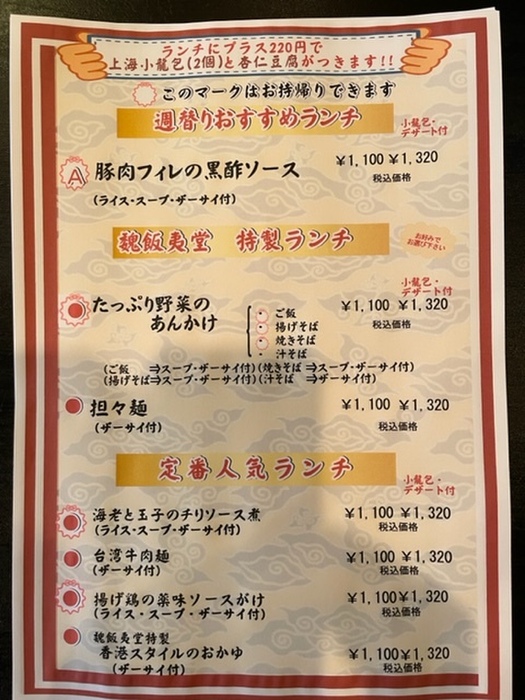 ランチにプラス220円で
上海小龍包(2個)と杏仁豆腐がつきます!!
このマークはお持帰りできます
週替りおすすめランチ
小龍包・
デザート付
A 豚肉フィレの黒酢ソース ¥1,100 ¥1,320
税込価格
(ライス・スープ・ザーサイ付)
魏飯夷堂 特製ランチ
お好みで
お選び下さい
小龍包・
デザート付
たっぷり野菜の
あんかけ
¥1,100 ¥1,320
税込価格
ご飯
揚げそば
焼きそば
汁そば
(ご飯 ⇒スープ・ザーサイ付)(焼きそば ⇒スープ・ザーサイ付)
(揚げそば⇒スープ・ザーサイ付)(汁そば ⇒ザーサイ付)
担々麺 ¥1,100 ¥1,320
(ザーサイ付) 税込価格
定番人気ランチ
小龍包・
デザート付
海老と玉子のチリソース煮 ¥1,100 ¥1,320
(ライス・スープ・ザーサイ付) 税込価格
台湾牛肉麺 ¥1,100 ¥1,320
(ザーサイ付) 税込価格
揚げ鶏の薬味ソースがけ ¥1,100 ¥1,320
(ライス・スープ・ザーサイ付) 税込価格
魏飯夷堂特製
香港スタイルのおかゆ ¥1,100 ¥1,320
(ザーサイ付) 税込価格